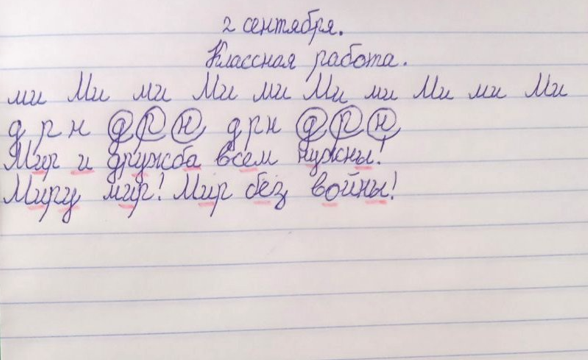 2 сентября.
Классная работа.
ми Ми ми Ми ми Ми ми Ми ми Ми
д р н д р н д р н д р н
Мир и дружба всем нужны!
Миру мир! Мир без войны!